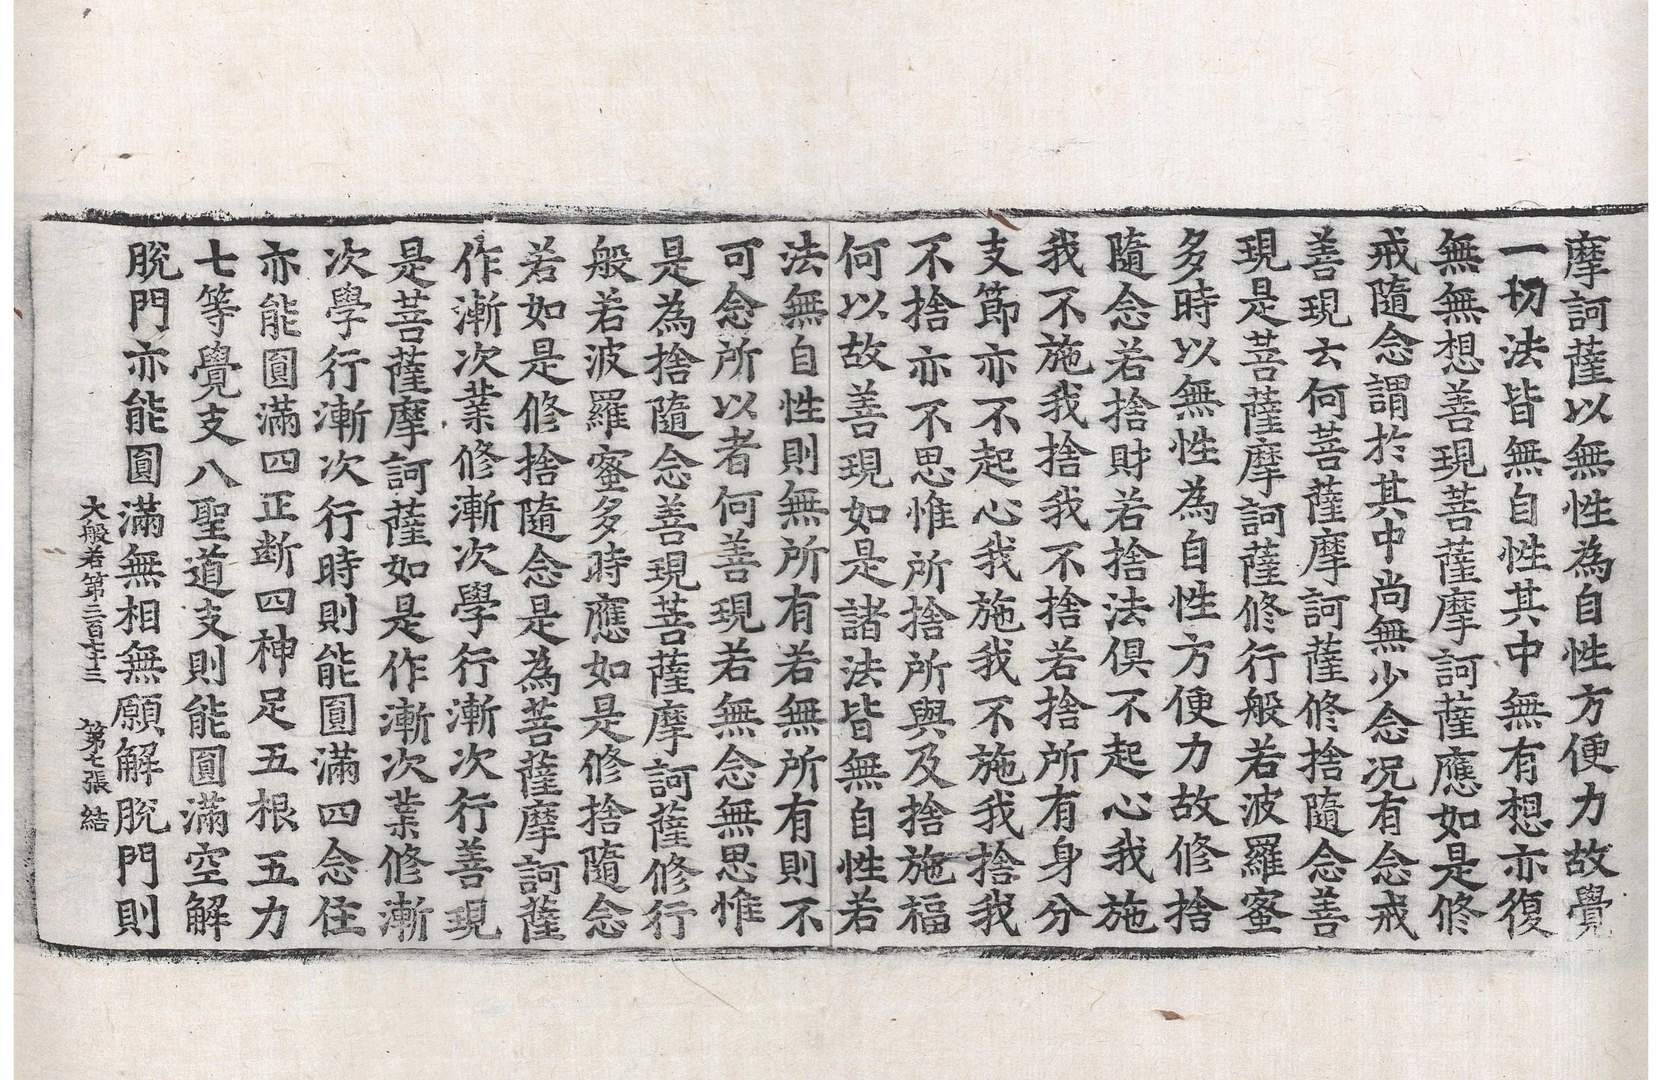 摩訶薩以無性為自性方便力故覺
一切法皆無自性其中無有想亦復
無無想善現菩薩摩訶薩應如是修
戒隨念謂於其中尚無少念况有念戒
善現云何菩薩摩訶薩修捨隨念善
現是菩薩摩訶薩修行般若波羅蜜
多時以無性為自性方便力故修捨
隨念若捨財若捨法俱不起心我施
我不施我捨我不捨若捨所有身分
支節亦不起心我施我不施我捨我
不捨亦不思惟所捨所與及捨施福
何以故善現如是諸法皆無自性若
法無自性則無所有若無所有則不
可念所以者何善現若無念無思惟
是為捨隨念善現菩薩摩訶薩修行
般若波羅蜜多時應如是修捨隨念
若如是修捨隨念是為菩薩摩訶薩
作漸次業修漸次學行漸次行善現
是菩薩摩訶薩如是作漸次業修漸
次學行漸次行時則能圓滿四念住
亦能圓滿四正断四神足五根五力
七等覺支八聖道支則能圓滿空解
脫門亦能圓滿無相無願解脫門則
大般若第三百七十三 第七張 結